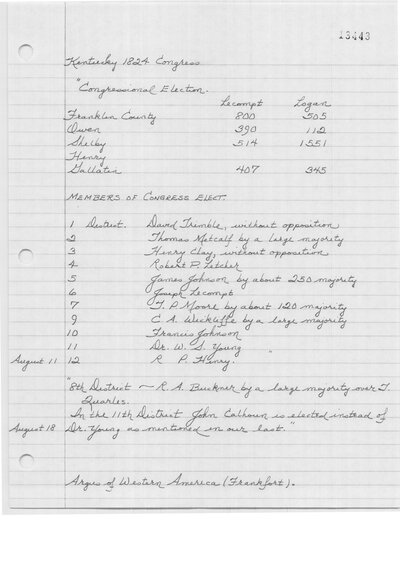 13443
Kentucky 1824 Congress
"Congressional Election.
Lecompt Logan
Franklin County 800 505
Owen 390 112
Shelby 514 1551
Henry
Gallatin 407 345
MEMBERS OF CONGRESS ELECT.
1 District. David Trimble, without opposition
2 Thomas Metcalf by a large majority
3 Henry Clay, without opposition
4 Robert P. Letcher
5 James Johnson by about 250 majority
6 Joseph Lecompt
7 T. P. Moore by about 120 majority
9 C. A. Wickliffe by a large majority
10 Francis Johnson
11 Dr. W. S. Young
August 11 12 R. P. Henry. "
"8th District ~ R. A. Buckner by a large majority over T.
Quarles.
In the 11th District John Calhoun is elected instead of
August 18 Dr. Young as mentioned in our last."
Argus of Western America (Frankfort).